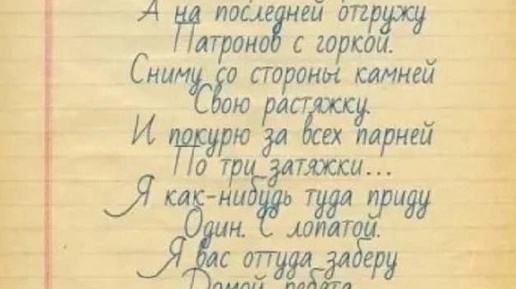 А на последней отгружу
Патронов с горкой.
Сниму со стороны камней
Свою растяжку.
И покурю за всех парней
По три затяжки...
Я как-нибудь туда приду
Один. С лопатой.
Я вас оттуда заберу
Домой, ребята